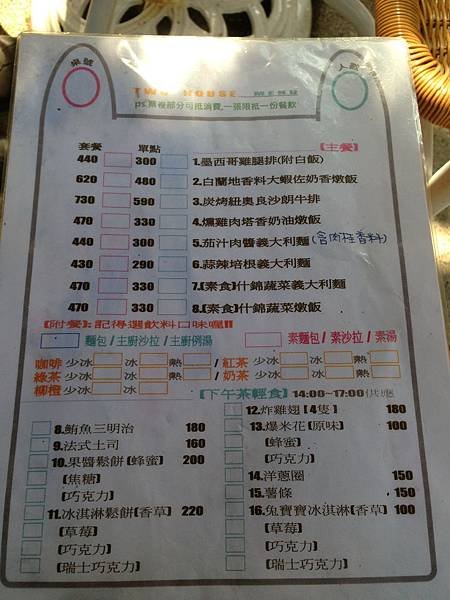 桌號
人數
TWO HOUSE
ps.票卷部分可抵消費,一張限抵一份餐飲
套餐 單點 【主餐】
440 300 1.墨西哥雞腿排(附白飯)
620 480 2.白蘭地香料大蝦佐奶香燉飯
730 590 3.炭烤紐奧良沙朗牛排
470 330 4.燻雞肉塔香奶油燉飯
440 300 5.茄汁肉醬義大利麵(含肉桂香料)
430 290 6.蒜辣培根義大利麵
470 330 7.[素食]什錦蔬菜義大利麵
470 330 8.[素食]什錦蔬菜燉飯
【附餐】:記得選飲料口味喔!!
麵包/主廚沙拉/主廚例湯 素麵包/素沙拉/素湯
咖啡 少冰 冰 熱 / 紅茶 少冰 冰 熱
綠茶 少冰 冰 熱 / 奶茶 少冰 冰 熱
柳橙 少冰 冰
【下午茶輕食】14:00~17:00供應
8.鮪魚三明治 180
9.法式土司 160
10.果醬鬆餅(蜂蜜) 200
(焦糖)
(巧克力)
11.冰淇淋鬆餅(香草) 220
(草莓)
(巧克力)
(瑞士巧克力)
12.炸雞翅【4隻】 180
13.爆米花(原味) 100
(蜂蜜)
(巧克力)
14.洋蔥圈 150
15.薯條 150
16.兔寶寶冰淇淋(香草) 100
(草莓)
(巧克力)
(瑞士巧克力)